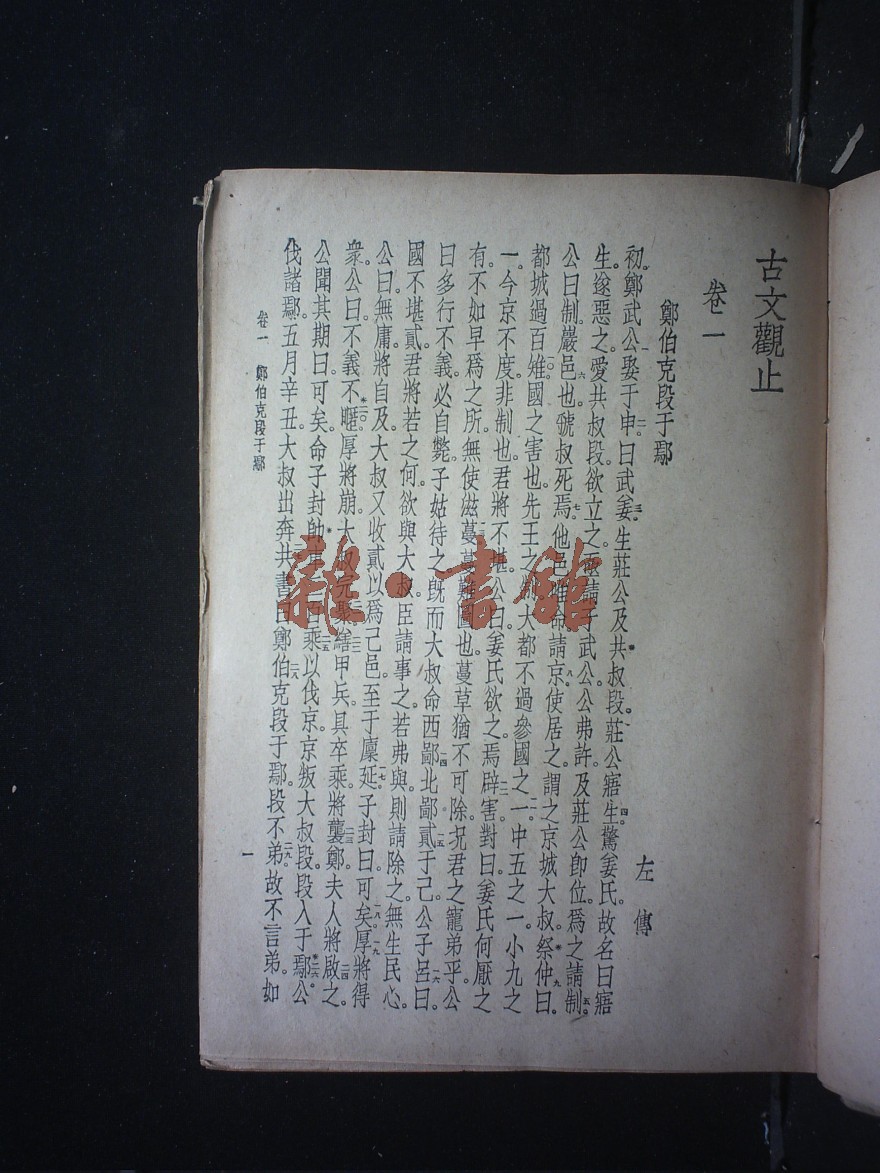 古文觀止
卷一
鄭伯克段于鄢
左傳
初。鄭武公娶于申。曰武姜。生莊公及共叔段。莊公寤生。驚姜氏。故名曰寤
生。遂惡之。愛共叔段。欲立之。亟請于武公。公弗許。及莊公卽位。爲之請制。
公曰。制。巖邑也。虢叔死焉。他邑唯命。請京。使居之。謂之京城大叔。祭仲曰。
都城過百雉。國之害也。先王之制。大都不過參國之一。中五之一。小九之
一。今京不度。非制也。君將不堪。公曰。姜氏欲之。焉辟害。對曰。姜氏何厭之
有。不如早爲之所。無使滋蔓。蔓難圖也。蔓草猶不可除。況君之寵弟乎。公
曰。多行不義。必自斃。子姑待之。旣而大叔命西鄙北鄙貳于己。公子呂曰。
國不堪貳。君將若之何。欲與大叔。臣請事之。若弗與。則請除之。無生民心。
公曰。無庸。將自及。大叔又收貳以爲己邑。至于廩延。子封曰。可矣。厚將得
衆。公曰。不義不暱。厚將崩。大叔完聚。繕甲兵。具卒乘。將襲鄭。夫人將啟之。
公聞其期。曰。可矣。命子封帥車二百乘以伐京。京叛大叔段。段入于鄢。公
伐諸鄢。五月辛丑。大叔出奔共。書曰。鄭伯克段于鄢。段不弟。故不言弟。如
卷一 鄭伯克段于鄢
一
雜·書館